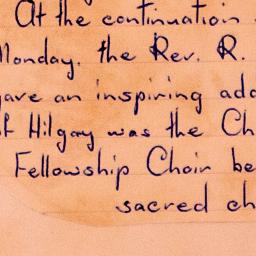 At the continuation
Monday. the Rev. R.
gave an inspiring add
of Hilgay was the Ch
Fellowship Choir be
sacred ch